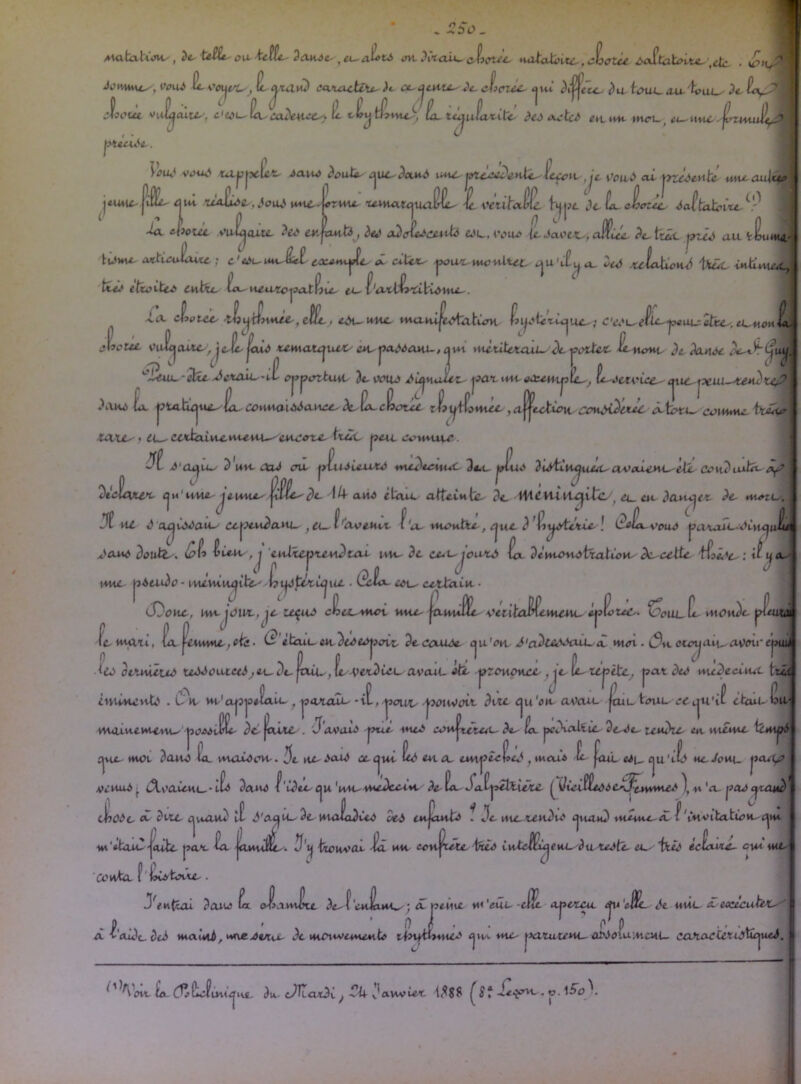 - 250 -
natation, de telle ou telle danse, et alors on dirait chorée natatoire, chorée saltatoire, etc. . En
somme, vous le voyez, le grand caractère de ce genre de chorée qui diffère du tout au tout de la
chorée vulgaire, c'est la cadence, le rhythme, la régularité des actes en un mot, et une formule
précise.
Vous vous rappelez sans doute que dans une précédente leçon, je vous ai présenté une autre
jeune fille qui réalise, sous une forme remarquable le véritable type de la chorée saltatoire (1)
La chorée vulgaire des enfants, des adolescents est, vous le savez, alliée de très près au rhuma-
tisme articulaire ; c'est un bel exemple à citer pour montrer qu'il y a des relations très intimes,
très étroites entre la neuropathie et l'arthritisme.
La chorée rhythmée, elle, est une manifestation hystérique ; c'est elle peut-être, et non la
chorée vulgaire, je le fais remarquer en passant, qui mériterait de porter le nom de danse de St Guy.
Peut-être serait-il opportun de vous signaler par un exemple, le service que peut rendre
dans la pratique la connaissance de la chorée rhythmée, affection considérée à tort comme très
rare, et certainement encore très peu connue.
Il s'agit d'un cas où plusieurs médecins des plus distingués avaient été conduits à
déclarer qu'une jeune fille de 14 ans était atteinte de méningite, et en danger de mort.
Il ne s'agissait cependant, et l'avenir l'a montré, que d'hystérie ! Cela vous paraît singulier
sans doute. Eh bien, j'entreprendrai un de ces jours la démonstration de cette thèse : il y a
une pseudo-méningite hystérique. Cela est certain.
Donc, un jour, je reçus chez moi une famille véritablement éplorée. Tout le monde pleurait
le mari, la femme, etc. C'était en désespoir de cause qu'on s'adressait à moi. On croyait avoir épuisé
les dernières ressources, et de fait, le verdict avait été prononcé, je le répète, par des médecins très
éminents. On m'appelait, paraît-il, pour pouvoir dire qu'on avait fait tout ce qu'il était hu-
mainement possible de faire. J'avais prié mes confrères de la pédiatrie de se rendre en même temps
que moi dans la maison. Je ne sais ce qui les en a empêchés, mais le fait est qu'ils ne sont pas
venus ; Avaient-ils dans l'idée qu'un médecin de la Salpêtrière (Vieillesse femmes), n'a pas grand
chose à dire quand il s'agit de maladies des enfants ? Je me rendis quand même à l'invitation qui
m'était faite par la famille. J'y trouvai là un confrère très intelligent du reste et très éclairé qui me
conta l'histoire.
J'entrai dans la chambre de l'enfant ; à peine m'eût-elle aperçu qu'elle se mit à exécuter
à l'aide des mains, une série de mouvements rhythmés qui me parurent absolument caractéristiques.
(1) Voir la Policlinique du Mardi, 24 Janvier 1888 (8e Leçon. p. 150).